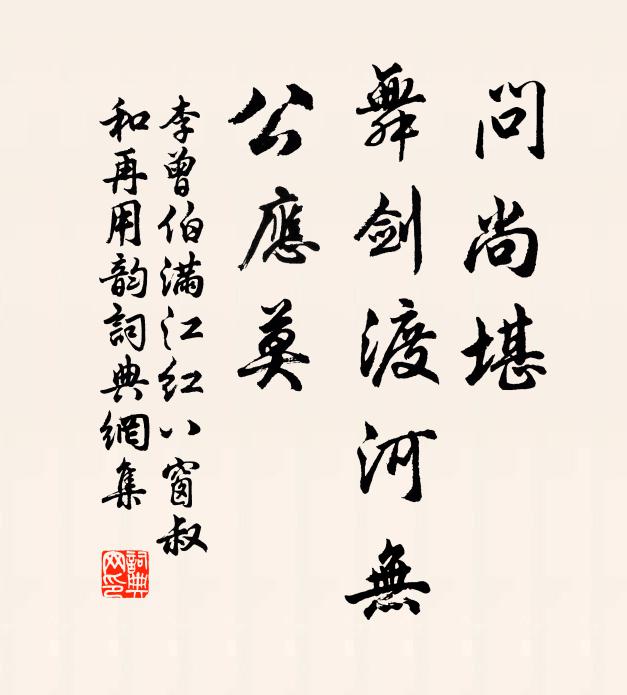 問尚堪
舞剑渡河無
公應莫
李曾伯满江红八窗叔
和再用韵詞典網集
詞典
网印